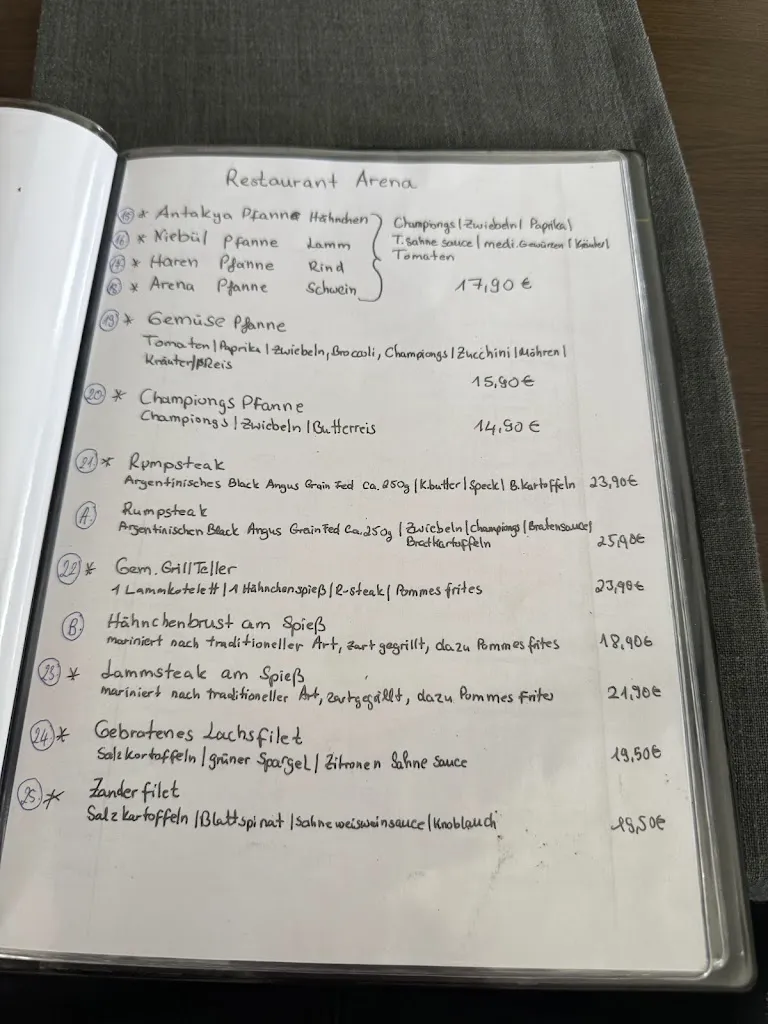 Restaurant Arena
15 * Antakya Pfanne Hähnchen
16 * Niebül Pfanne Lamm
17 * Haren Pfanne Rind
18 * Arena Pfanne Schwein
Championgs | Zwiebeln | Paprika |
T. Sahne sauce | medi. Gewürzen | Kräuter |
Tomaten
17,90 €
19 * Gemüse Pfanne
Tomaten | Paprika | Zwiebeln, Broccoli, Championgs | Zucchini | Möhren |
Kräuter | Reis
15,90 €
20 * Championgs Pfanne
Championgs | Zwiebeln | Butterreis 14,90 €
21. * Rumpsteak
Argentinisches Black Angus Grain Fed ca. 250g | K.butter | Speck | B.kartoffeln 23,90€
A. Rumpsteak
Argentinischen Black Angus Grain Fed Ca. 250g | Zwiebeln | Championgs | Bratensauce |
Bratkartoffeln 25,90€
22. * Gem. Grill Teller
1 Lammkotelett | 1 Hähnchenspieß | R-steak | Pommes frites 23,90€
B. Hähnchenbrust am Spieß
mariniert nach traditioneller Art, zart gegrillt, dazu Pommes frites 18,90€
23. * Lammsteak am Spieß
mariniert nach traditioneller Art, zart gegrillt, dazu Pommes Frites 21,90€
24. * Gebratenes Lachsfilet
Salzkartoffeln | grüner Spargel | Zitronen Sahne sauce 19,50€
25. * Zanderfilet
Salzkartoffeln | Blattspinat | Sahne weisweinsauce | Knoblauch 19,50€